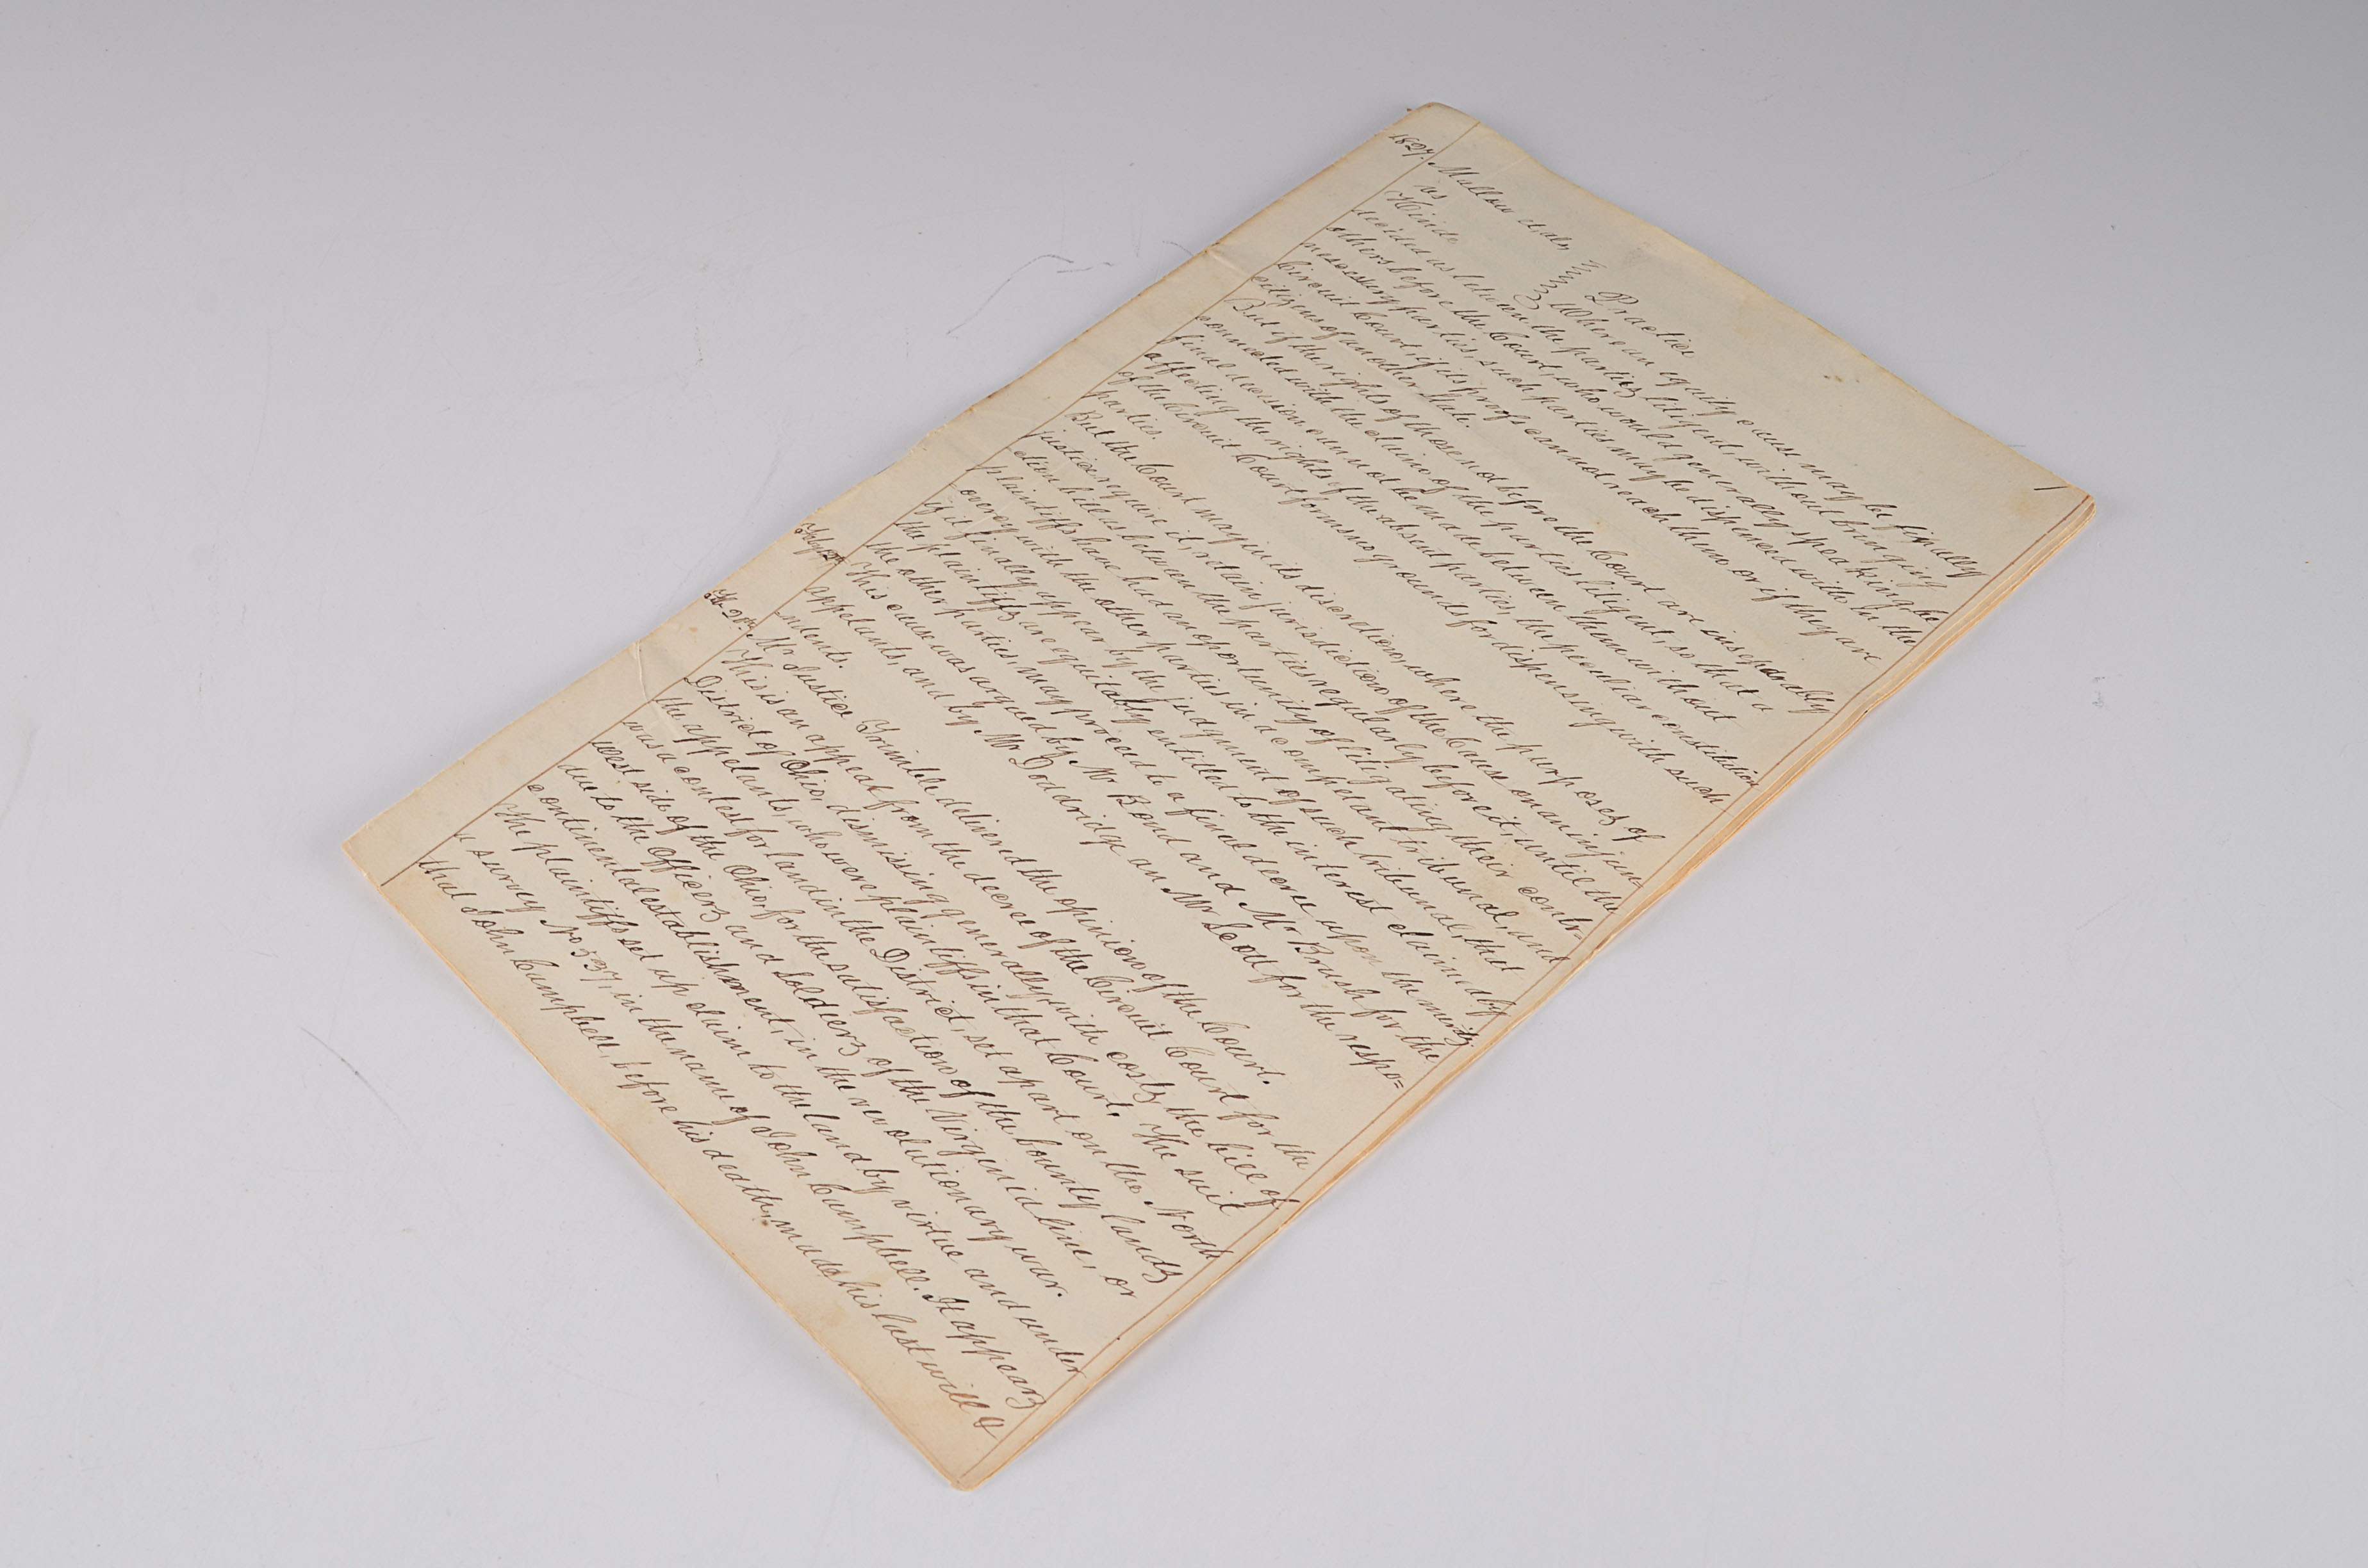 1
1827. Mallow et, als,
vs
Hinde
Practice
Where an equity cause may be finally
decided as between the parties litigent, without bringing
others before the Court, who would, generally speaking, be
nessessery parties, such parties may be dispensed with, in the
Circuit Court, if its proofs cannot reach them or if they are
citizens of another State.
But if the rights of those not before the Court are inseperably
connected with the claim of the parties litigent, so that a
final decision cannot be made between them without
affecting the rights of the absent parties, the peculiar constitution
of the Circuit Court forms no grounds for dispensing with such
parties.
But the Court may in its discretion, where the purposes of
justice require it, retain jurisdiction of the Cause on an injun-
ction bill as between the parties regularly before it, until the
plaintiffs have had an oportunity of litigating their contr-
oversy with the other parties in a compelant tribunal, and
if it finally appear by the judgment of such tribunal, that
the plaintiffs are equitably entitled to the interest claimed by
the other parties, may proceed to a final decree upon the merits.
Feby 12th This cause was argued by Mr Bond and Mr Brush for the
appelants, and by Mr Doddridge an Mr Scott for the respo=
ndents.
Feb 20th Mr Justice Trimble delivered the opinion of the Court.
This is an appeal from the decree of the Circuit Court for the
District of Ohio, dismissing generally, with costs, the bill of
the appelants, who were plaintiffs in that Court. The suit
was a contest for land in the District, set apart on the North
west side of the Ohio, for the satisfaction of the bounty lands
due to the Officers and Soldiers of the Virginia line, on
continental establishment, in the revolutionary war.
The plaintiffs set up claim to the land by virtue and under
a survey No 537, in the name of John Campbell. It appears
that John Campbell, before his death, made his last will &